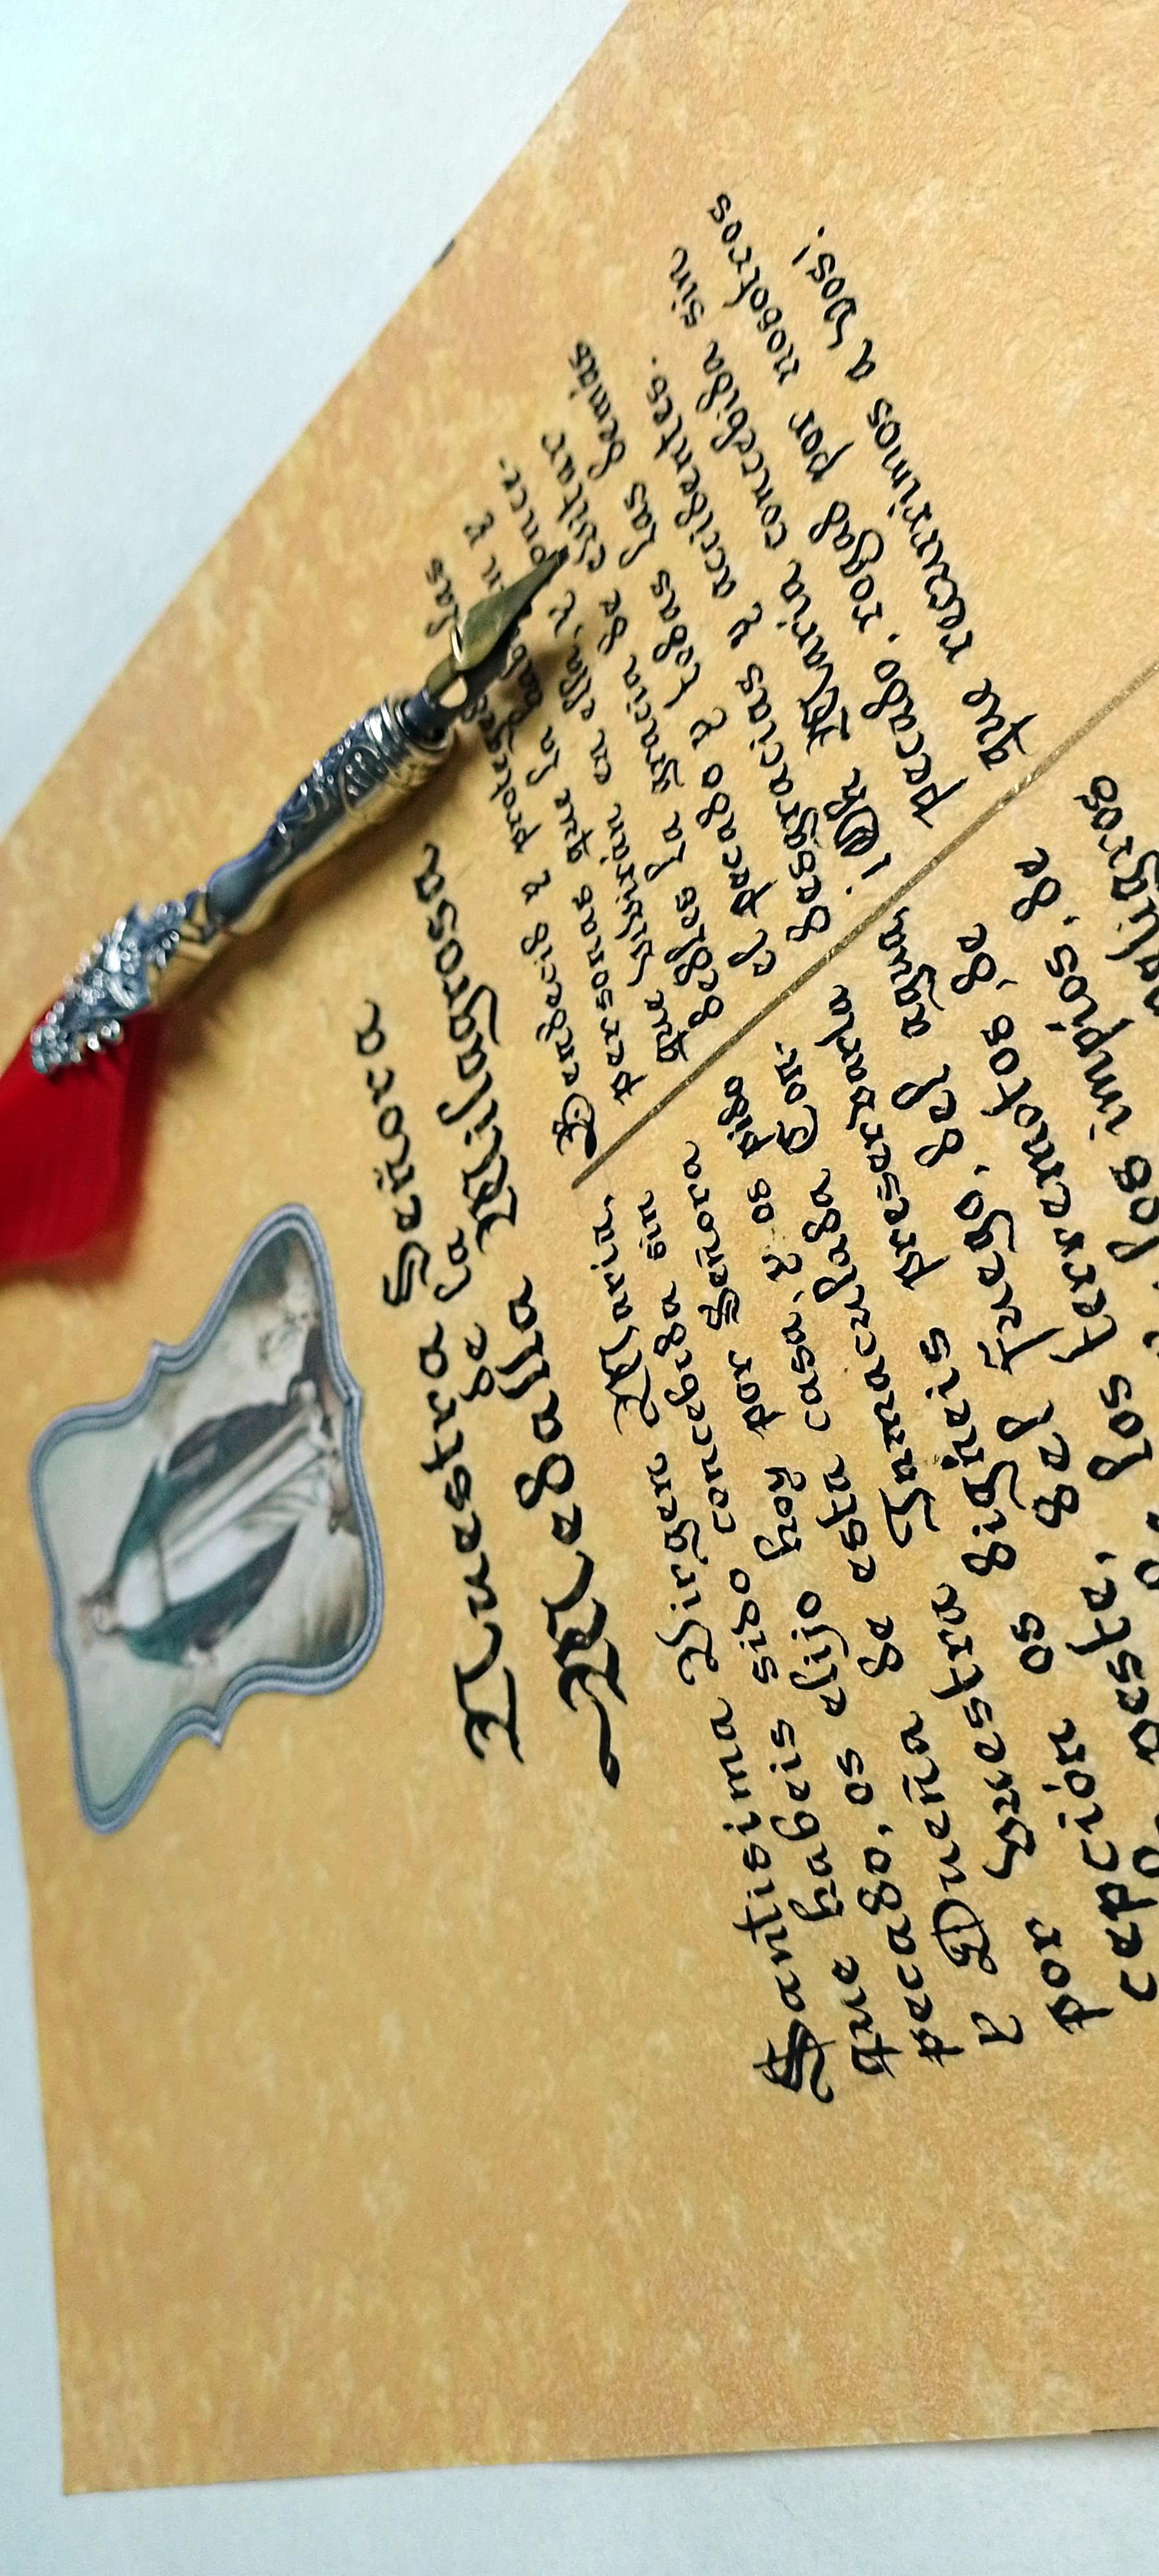 Nuestra Señora
de la
Medalla Milagrosa
Santísima Virgen María,
que habéis sido concebida sin
pecado, os elijo hoy por Señora
y Dueña de esta casa, y os pido
por vuestra Inmaculada Con-
cepción os dignéis preservarla
peste, del fuego, del agua
los terremotos, de
los impíos, de
Bendecid y proteged las
personas que
que vivirán en ella, y
dedles la gracia de evitar
el pecado y todas las demás
desgracias y accidentes.
¡Oh María concebida sin
pecado, rogad por nosotros
que recurrimos a Vos!.